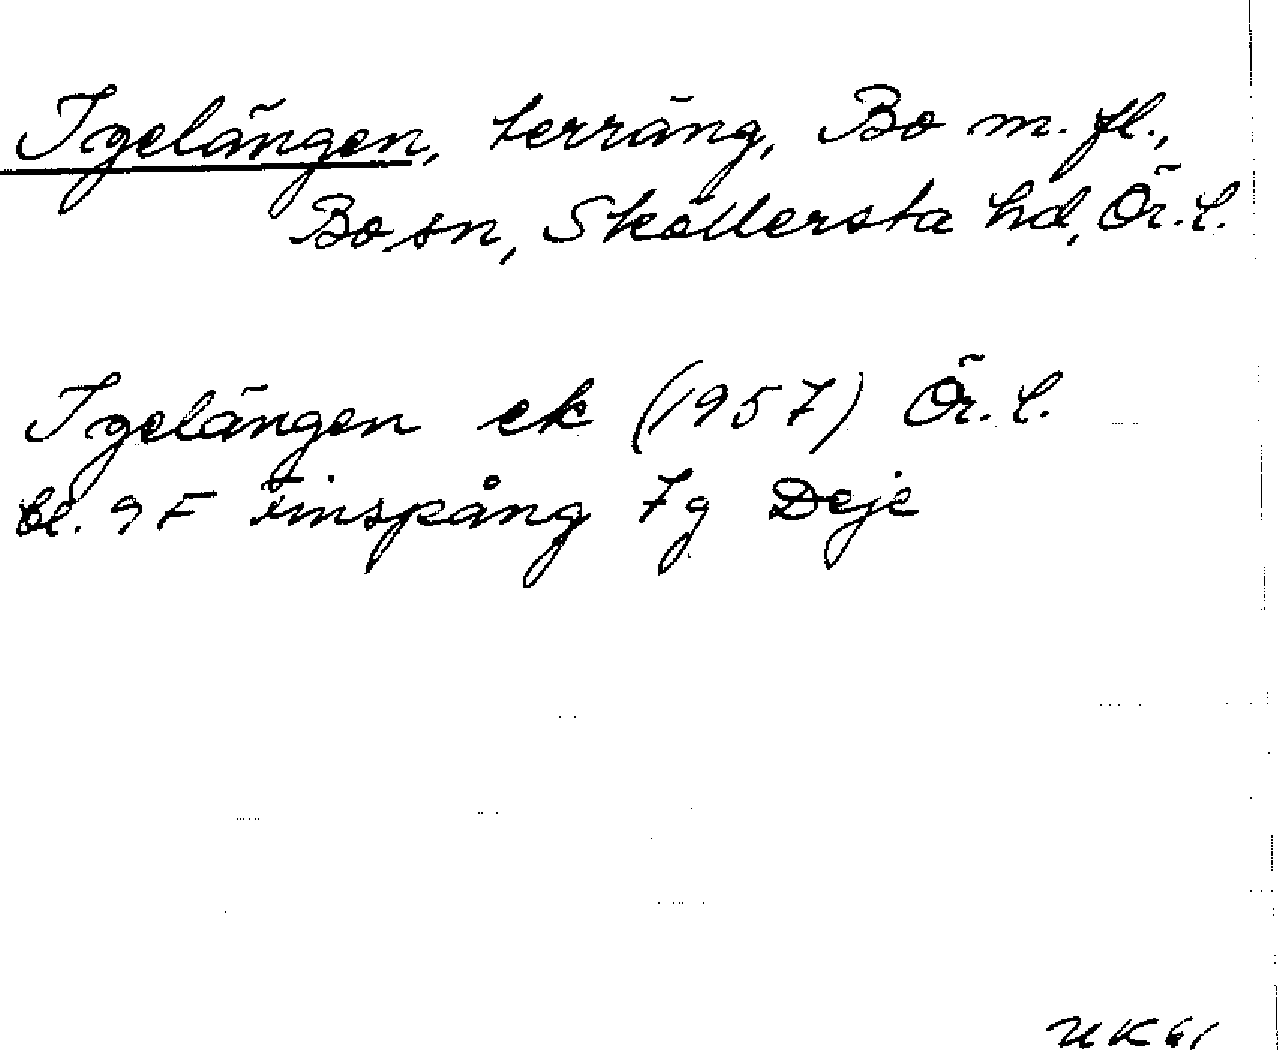 Igelängen, terräng, Bo m. fl.,
Bo sn, Sköllersta hd, Ör. l.
Igelängen ek (1957) Ör. l.
bl. 9 F Finspång 7g Deje
UK 61